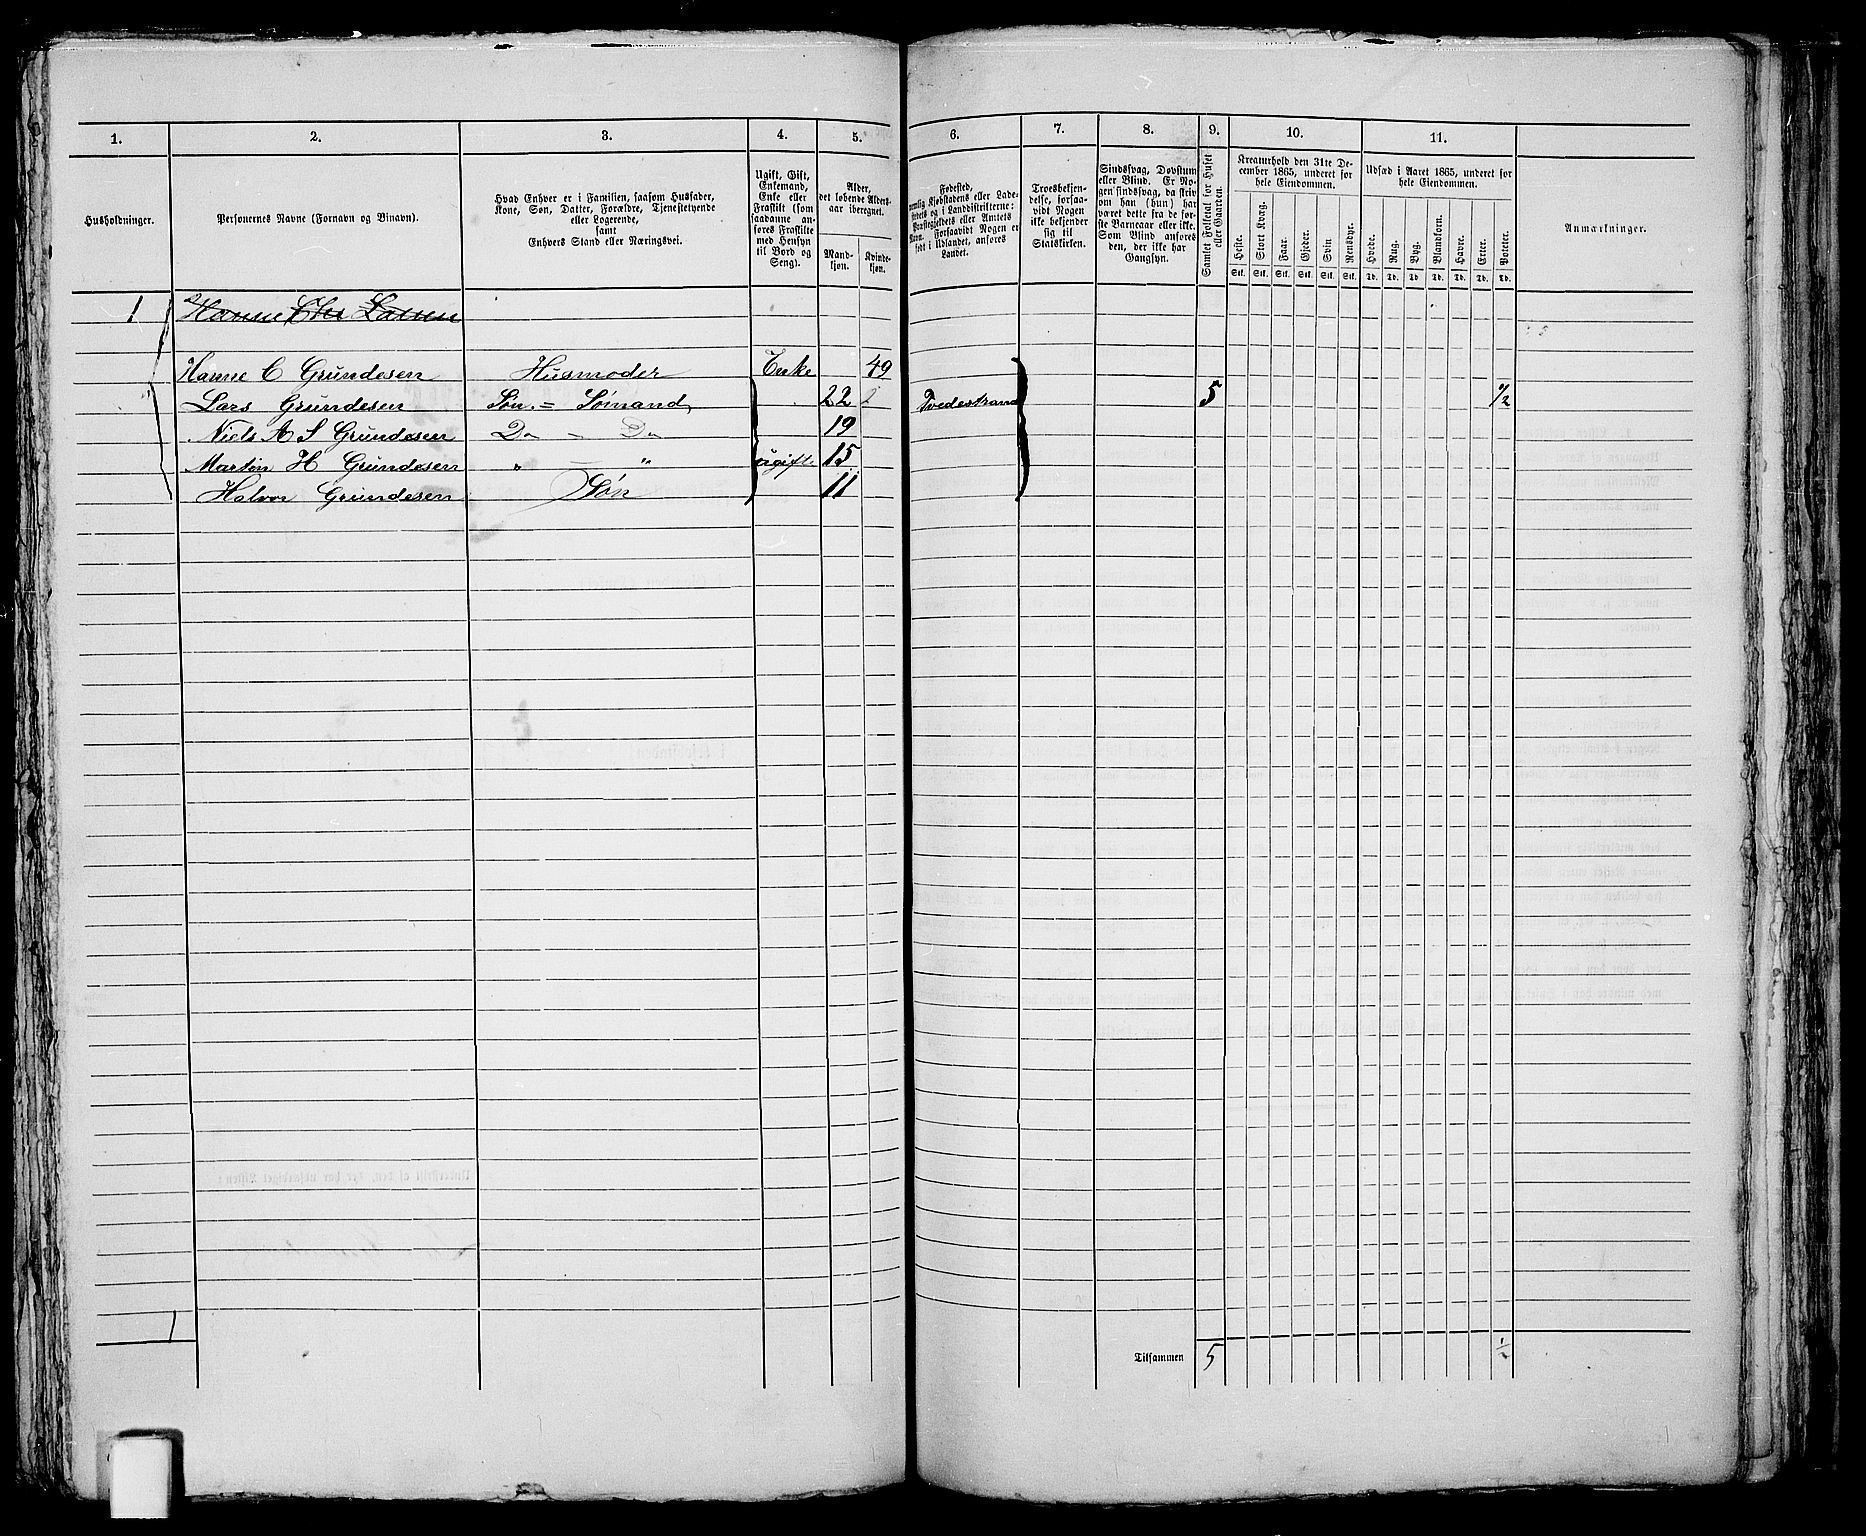 1. 2. 3. 4. 5. 6. 7. 8. 9. 10. 11.
Husholdninger.
Personernes Navne (Fornavn og Binavn).
Hvad Enhver er i Familien, saasom Husfader,
Kone, Søn, Datter, Forældre, Tjenestetyende
eller Logerende,
samt
Enhvers Stand eller Næringsvei.
Ugift, Gift,
Enkemand,
Enke eller
Fraskilt (som
saadanne an-
føres Fraskilte
med Hensyn
til Bord og
Seng).
Alder,
det løbende Alders-
aar iberegnet.
Mand-
kjøn.
Kvinde-
kjøn.
Fødested,
nemlig Kjøbstadens eller Lade-
stedets og i Landdistrikterne:
Præstegjeldets eller Amtets
Navn. Forsaavidt Nogen er
født i Udlandet, anføres
Landet.
Troesbekjen-
delse, forsaa-
vidt Nogen
ikke bekjender
sig til
Statskirken.
Sindssvag, Døvstum
eller Blind. Er No-
gen sindssvag, da skriv
om han (hun) har
været dette fra de før-
ste Barneaar eller ikke.
Som Blind anføres
den, der ikke har
Gangsyn.
Samlet Folketal for Huset
eller Gaarden.
Kreaturhold den 31te De-
cember 1865, underet for
hele Eiendommen.
Heste. Stort Kvæg. Faar. Gjeder. Svin Rensdyr.
Stk. Stk. Stk. Stk. Stk. Stk.
Udsæd i Aaret 1865, underet for
hele Eiendommen.
Hvede. Rug. Byg. Blandkorn. Havre. Erter. Poteter.
Td. Td. Td. Td. Td. Td. Td.
Anmærkninger.
1 Hanne Chr Larsen
Hanne C Grundesen Husmoder Enke 49
Lars Grundesen Søn = Sømand 22 Tvedestrand 5 1/2
Niels A S Grundesen Do - Do 19
Martin H Grundesen " - " ugift 15
Halvor Grundesen Søn 11
1
Tilsammen 5 1/2